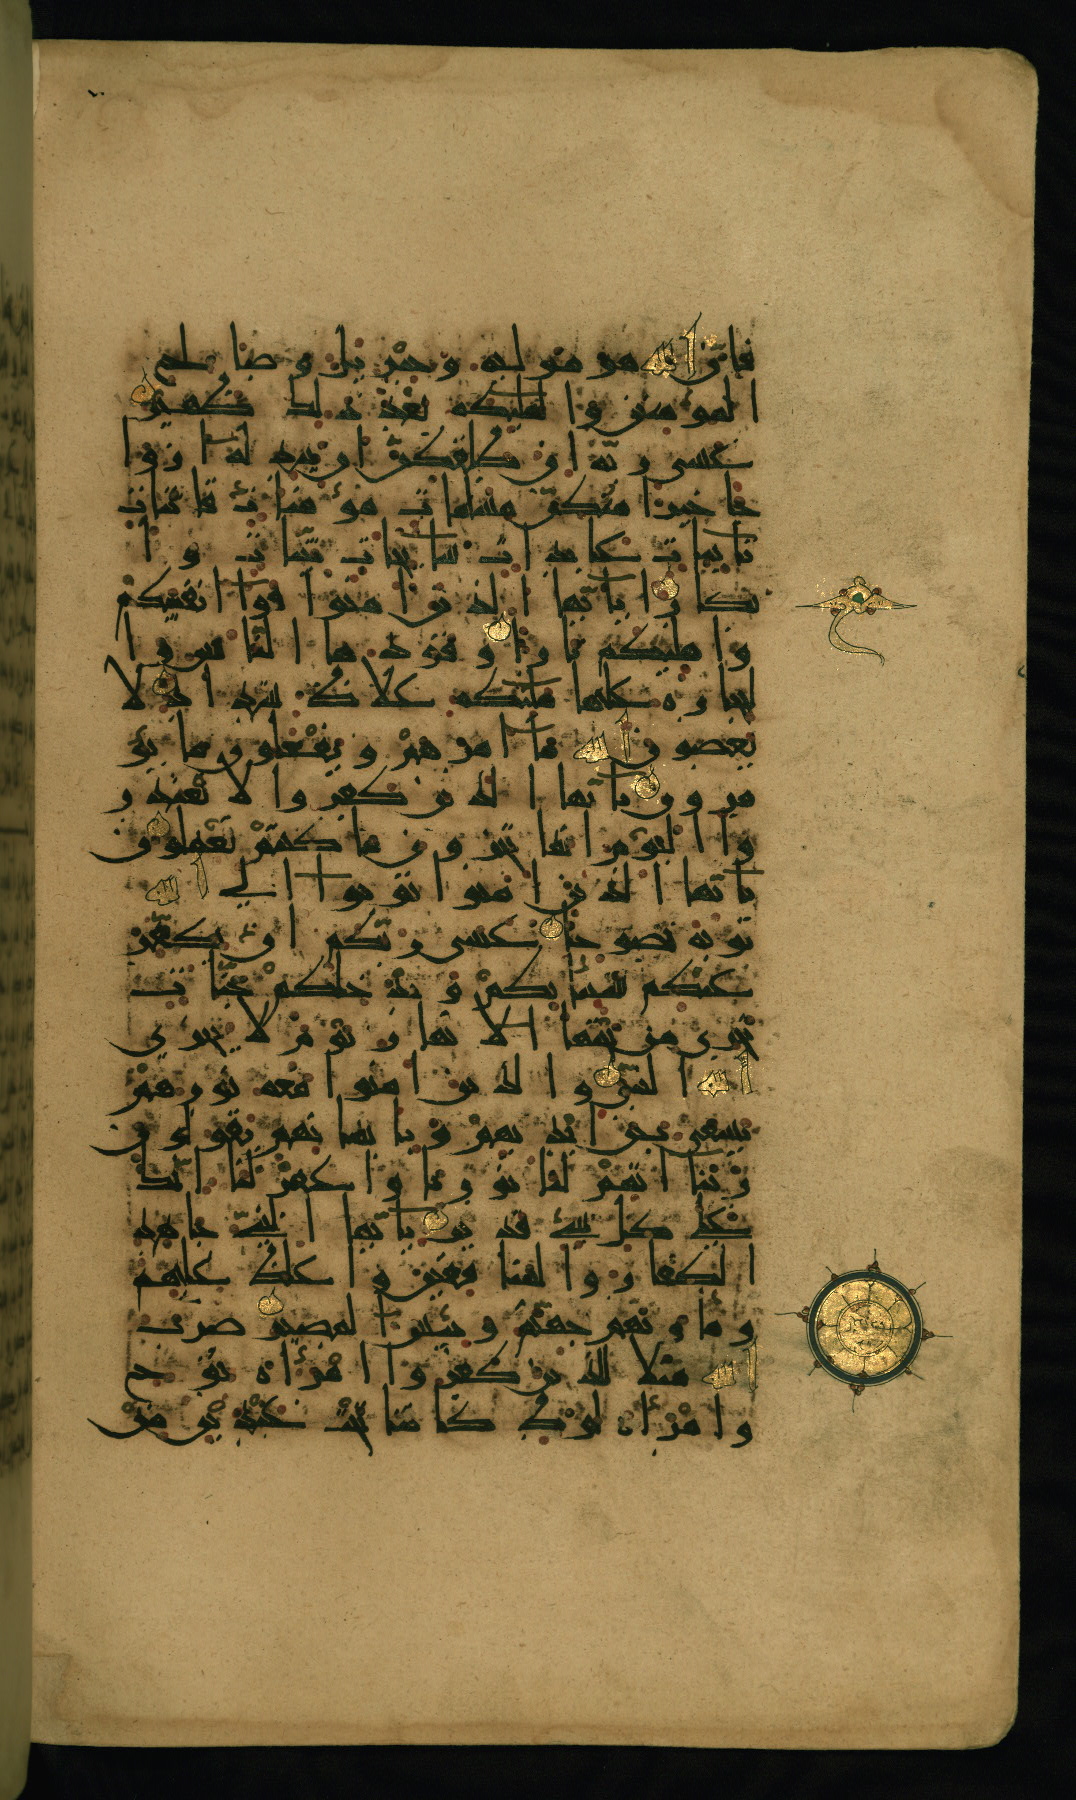 فان الله هو موليه وجبريل وصالح
المومنين والمليكة بعد ذلك ظهير
عسى ربه ان طلقكن ان يبدله ازوا
جا خيرا منكن مسلمات مؤمنات قانتات
تائبات عابدات سائحات ثيبات وا
بكارا يا ايها الذين امنوا قوا انفسكم
واهليكم نارا وقودها الناس وا
لحجارة عليها ملئكة غلاظ شداد لا
يعصون الله ما امرهم ويفعلون ما يؤ
مرون يا ايها الذين كفروا لا تعتذر
وا اليوم انما تجزون ما كنتم تعملون
يا ايها الذين امنوا توبوا الى الله
توبة نصوحا عسى ربكم ان يكفر
عنكم سيئاتكم ويدخلكم جنات
تجري من تحتها الانهار يوم لا يخزي
الله النبي والذين امنوا معه نورهم
يسعى بين ايديهم وبايمانهم يقولون
ربنا اتمم لنا نورنا واغفر لنا انك
على كل شيء قدير يا ايها النبي جاهد
الكفار والمنافقين واغلظ عليهم
وماويهم جهنم وبئس المصير ضرب
الله مثلا للذين كفروا امراة نوح
وامراة لوط كانتا تحت عبدين من